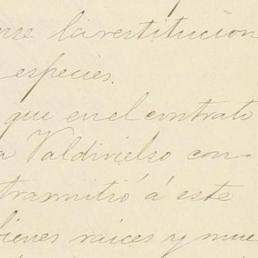 rse la restitucion
especies.
que en el contrato
a Valdivielso con-
trasmitió á este
bienes raices y mue